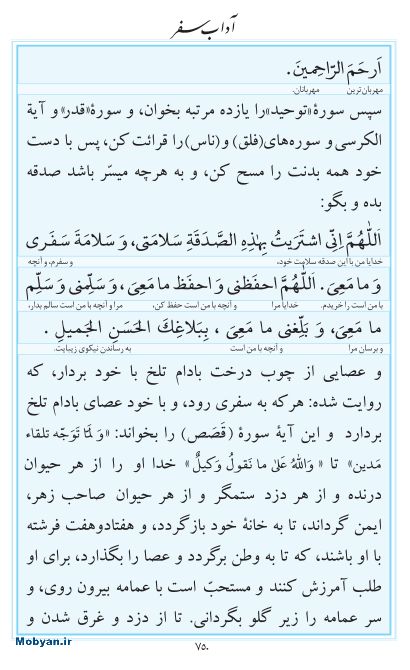 آداب سفر
اَرحَمَ الرّاحِمینَ.
مهربان‌ترین مهربانان.
سپس سورهٔ «توحید» را یازده مرتبه بخوان، و سورهٔ «قدر» و آیة
الکرسی و سوره‌های (فلق) و (ناس) را قرائت کن، پس با دست
خود همه بدنت را مسح کن، و به هرچه میسّر باشد صدقه
بده و بگو:
اَللّهُمَّ اِنِّی اشتَرَیتُ بِهٰذِهِ الصَّدَقَةِ سَلامَتی، وَ سَلامَةَ سَفَری
خدایا من با این صدقه سلامت خود، و سفرم، و آنچه
وَ ما مَعِیَ. اَللّهُمَّ احفَظنی وَ احفَظ ما مَعِیَ، وَ سَلِّمنی وَ سَلِّم
با من است را خریدم. خدایا مرا و آنچه با من است حفظ کن، مرا و آنچه با من است سالم بدار،
ما مَعِیَ، وَ بَلِّغنی ما مَعِیَ ، بِبَلاغِكَ الحَسَنِ الجَمیلِ .
و برسان مرا و آنچه با من است به رساندن نیکوی زیبایت.
و عصایی از چوب درخت بادام تلخ با خود بردار، که
روایت شده: هرکه به سفری رود، و با خود عصای بادام تلخ
بردارد و این آیهٔ سورهٔ (قَصَص) را بخواند: «وَ لَمّا تَوَجَّه تلقاء
مَدین» تا «وَاللهُ عَلیٰ ما نَقولُ وَکیلٌ» خدا او را از هر حیوان
درنده و از هر دزد ستمگر و از هر حیوان صاحب زهر،
ایمن گرداند، تا به خانهٔ خود بازگردد، و هفتادوهفت فرشته
با او باشند، که تا به وطن برگردد و عصا را بگذارد، برای او
طلب آمرزش کنند و مستحبّ است با عمامه بیرون روی، و
سر عمامه را زیر گلو بگردانی. تا از دزد و غرق شدن و
۷۵۰
Mobyan.ir